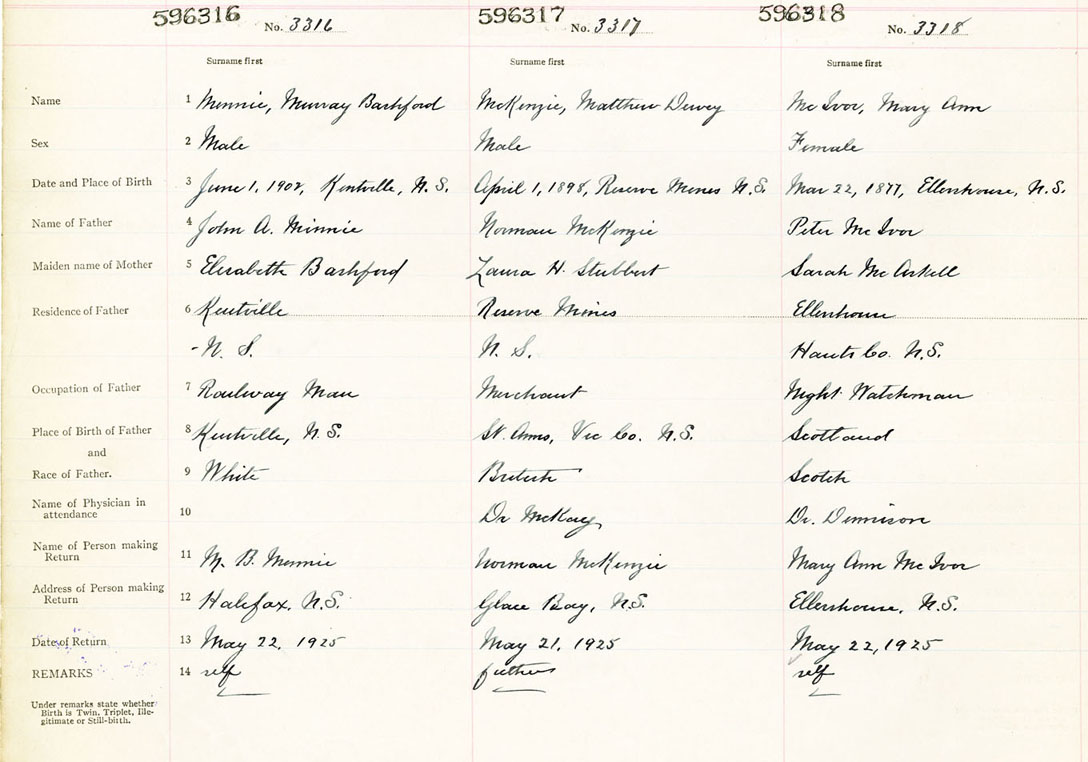 596316 596317 596318
No. 3316 No. 3317 No. 3318
Surname first Surname first Surname first
Name 1 Minnie, Murray Bashford McKenzie, Matthew Dewey Mc Ivor, Mary Ann
Sex 2 Male Male Female
Date and Place of Birth 3 June 1, 1902, Kentville, N.S. April 1, 1898, Reserve Mines N.S. Mar 22, 1877, Ellershouse, N.S.
Name of Father 4 John A. Minnie Norman McKenzie Peter Mc Ivor
Maiden name of Mother 5 Elisabeth Bashford Laura H. Stubbert Sarah Mc Askell
Residence of Father 6 Kentville Reserve Mines Ellershouse
- N. S. N. S. Hants Co. N.S.
Occupation of Father 7 Railway Man Merchant Night Watchman
Place of Birth of Father 8 Kentville, N.S. St. Anns, Vic Co. N.S. Scotland
and
Race of Father. 9 White British Scotch
Name of Physician in
attendance 10 Dr McKay Dr. Dennison
Name of Person making
Return 11 M. B. Minnie Norman McKenzie Mary Ann Mc Ivor
Address of Person making
Return 12 Halifax, N.S. Glace Bay, N.S. Ellershouse, N.S.
Date of Return 13 May 22, 1925 May 21, 1925 May 22, 1925
REMARKS 14 self father self
Under remarks state whether
Birth is Twin, Triplet, Ille-
gitimate or Still-birth.